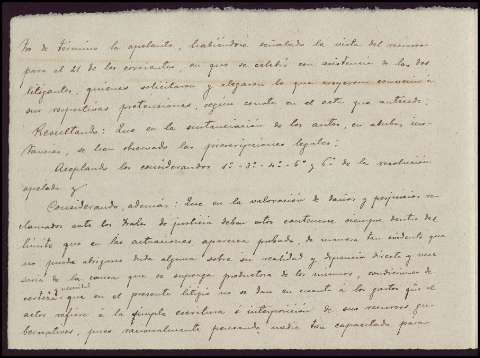 no de término la apelante, habiéndose señalado la vista del recurso
para el 21 de los corrientes, en que se celebró con asistencia de los dos
litigantes, quienes solicitaron y alegaron lo que creyeron conveniente á
sus respectivas pretensiones, según consta en el acta que antecede;
Resultando: Que en la sustanciación de los autos, en ambas ins-
tancias, se han observado las prescripciones legales;
Aceptando los considerandos 1º - 3º - 4º - 5º y 6º de la resolución
apelada y
Considerando, además: Que en la valoración de daños y perjuicios re-
clamados ante los Trales de justicia deben estos contenerse siempre dentro del
límite que en las actuaciones aparezca probado, de manera tan evidente que
no pueda abrigarse duda alguna sobre su realidad y dependencia directa y nece-
saria de la causa que se suponga productora de los mismos, condiciones de
certeza que en el presente litigio no se dan en cuanto á los gastos que el
actor refiere á la simple escritura é interposición de sus recursos gu-
bernativos, pues racionalmente pensando nadie tan capacitado para